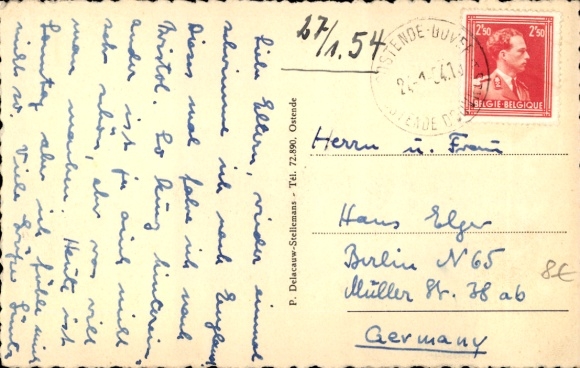 Liebe Eltern, wieder einmal
schwimme ich nach England
Dieses mal fahre ich nach
Bristol. So kurz hinterein-
ander ist ja auch nicht
sehr schön, aber was will
man machen. Heute ist
Sonntag aber ich fühle mich
nicht so. Viele Grüße Günter
P. Delacauw-Stellemans - Tél. 72.890, Ostende
27/1.54
OSTENDE-DOVER
24-1 54
2F50 2F50
BELGIE-BELGIQUE
Herrn u. Frau
Hans Elger
Berlin N 65
Müller Str. 38 ab
Germany
8€